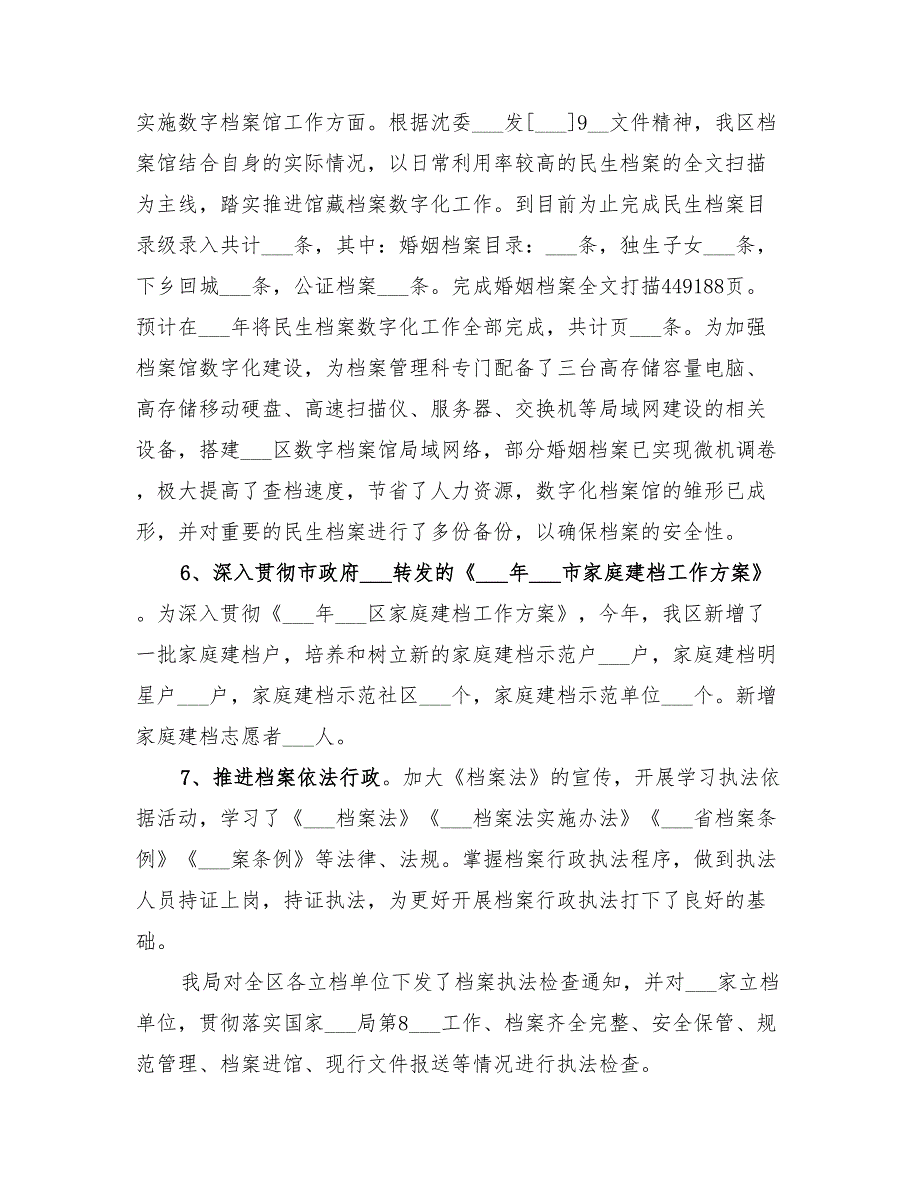 实施数字档案馆工作方面。根据沈委___发[___]9__文件精神，我区档
案馆结合自身的实际情况，以日常利用率较高的民生档案的全文扫描
为主线，踏实推进馆藏档案数字化工作。到目前为止完成民生档案目
录级录入共计___条，其中：婚姻档案目录：___条，独生子女___条，
下乡回城___条，公证档案___条。完成婚姻档案全文打描449188页。
预计在___年将民生档案数字化工作全部完成，共计页___条。为加强
档案馆数字化建设，为档案管理科专门配备了三台高存储容量电脑、
高存储移动硬盘、高速扫描仪、服务器、交换机等局域网建设的相关
设备，搭建___区数字档案馆局域网络，部分婚姻档案已实现微机调卷
，极大提高了查档速度，节省了人力资源，数字化档案馆的雏形已成
形，并对重要的民生档案进行了多份备份，以确保档案的安全性。
6、深入贯彻市政府___转发的《___年___市家庭建档工作方案》
。为深入贯彻《___年___区家庭建档工作方案》，今年，我区新增了
一批家庭建档户，培养和树立新的家庭建档示范户___户，家庭建档明
星户___户，家庭建档示范社区___个，家庭建档示范单位___个。新增
家庭建档志愿者___人。
7、推进档案依法行政。加大《档案法》的宣传，开展学习执法依
据活动，学习了《___档案法》《___档案法实施办法》《___省档案条
例》《___案条例》等法律、法规。掌握档案行政执法程序，做到执法
人员持证上岗，持证执法，为更好开展档案行政执法打下了良好的基
础。
我局对全区各立档单位下发了档案执法检查通知，并对___家立档
单位，贯彻落实国家___局第8___工作、档案齐全完整、安全保管、规
范管理、档案进馆、现行文件报送等情况进行执法检查。